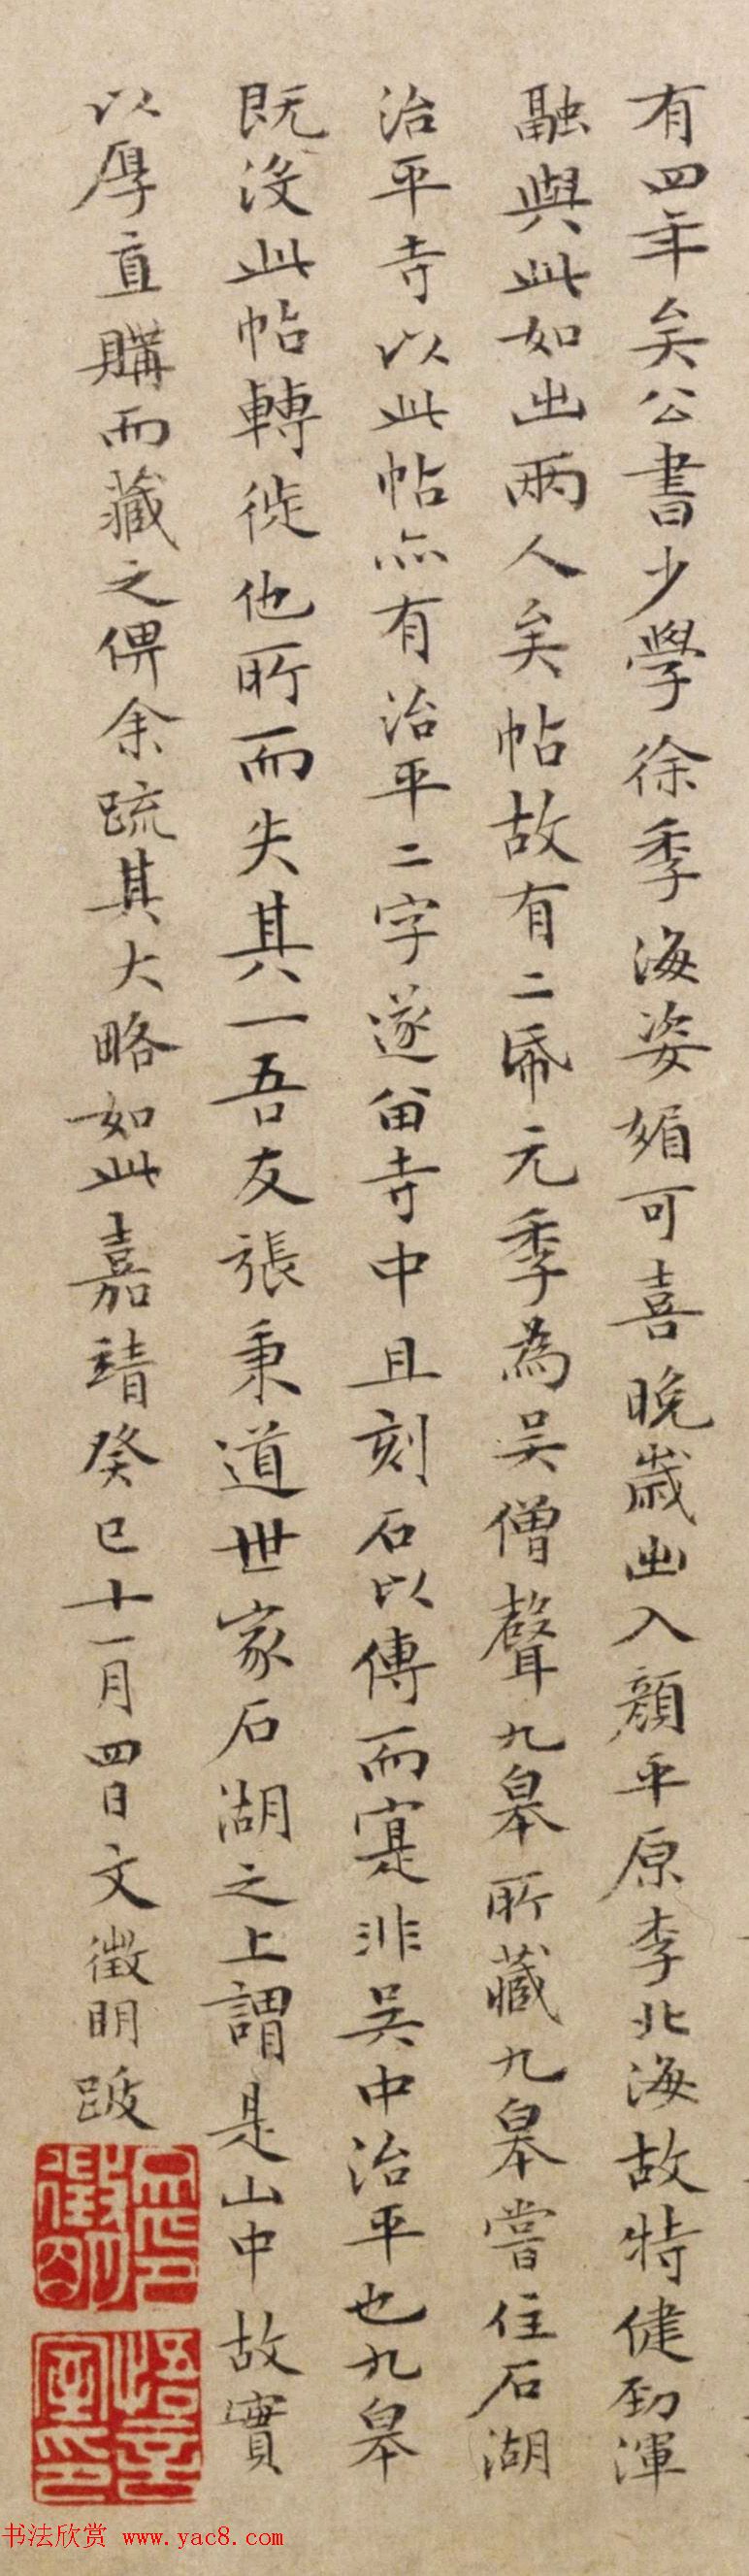 有四年矣公書少學徐季海姿媚可喜晚歲出入顏平原李北海故特健勁渾
融與此如出兩人矣帖故有二帋元季為吳僧聲九皋所藏九皋嘗住石湖
治平寺以此帖亦有治平二字遂留寺中且刻石以傳而寔非吳中治平也九皋
既没此帖轉徙他所而失其一吾友張秉道世家石湖之上謂是山中故實
以厚直購而藏之俾余疏其大略如此嘉靖癸巳十一月四日文徵明跋
徵明印
悟言室印
书法欣赏 www.yac8.com